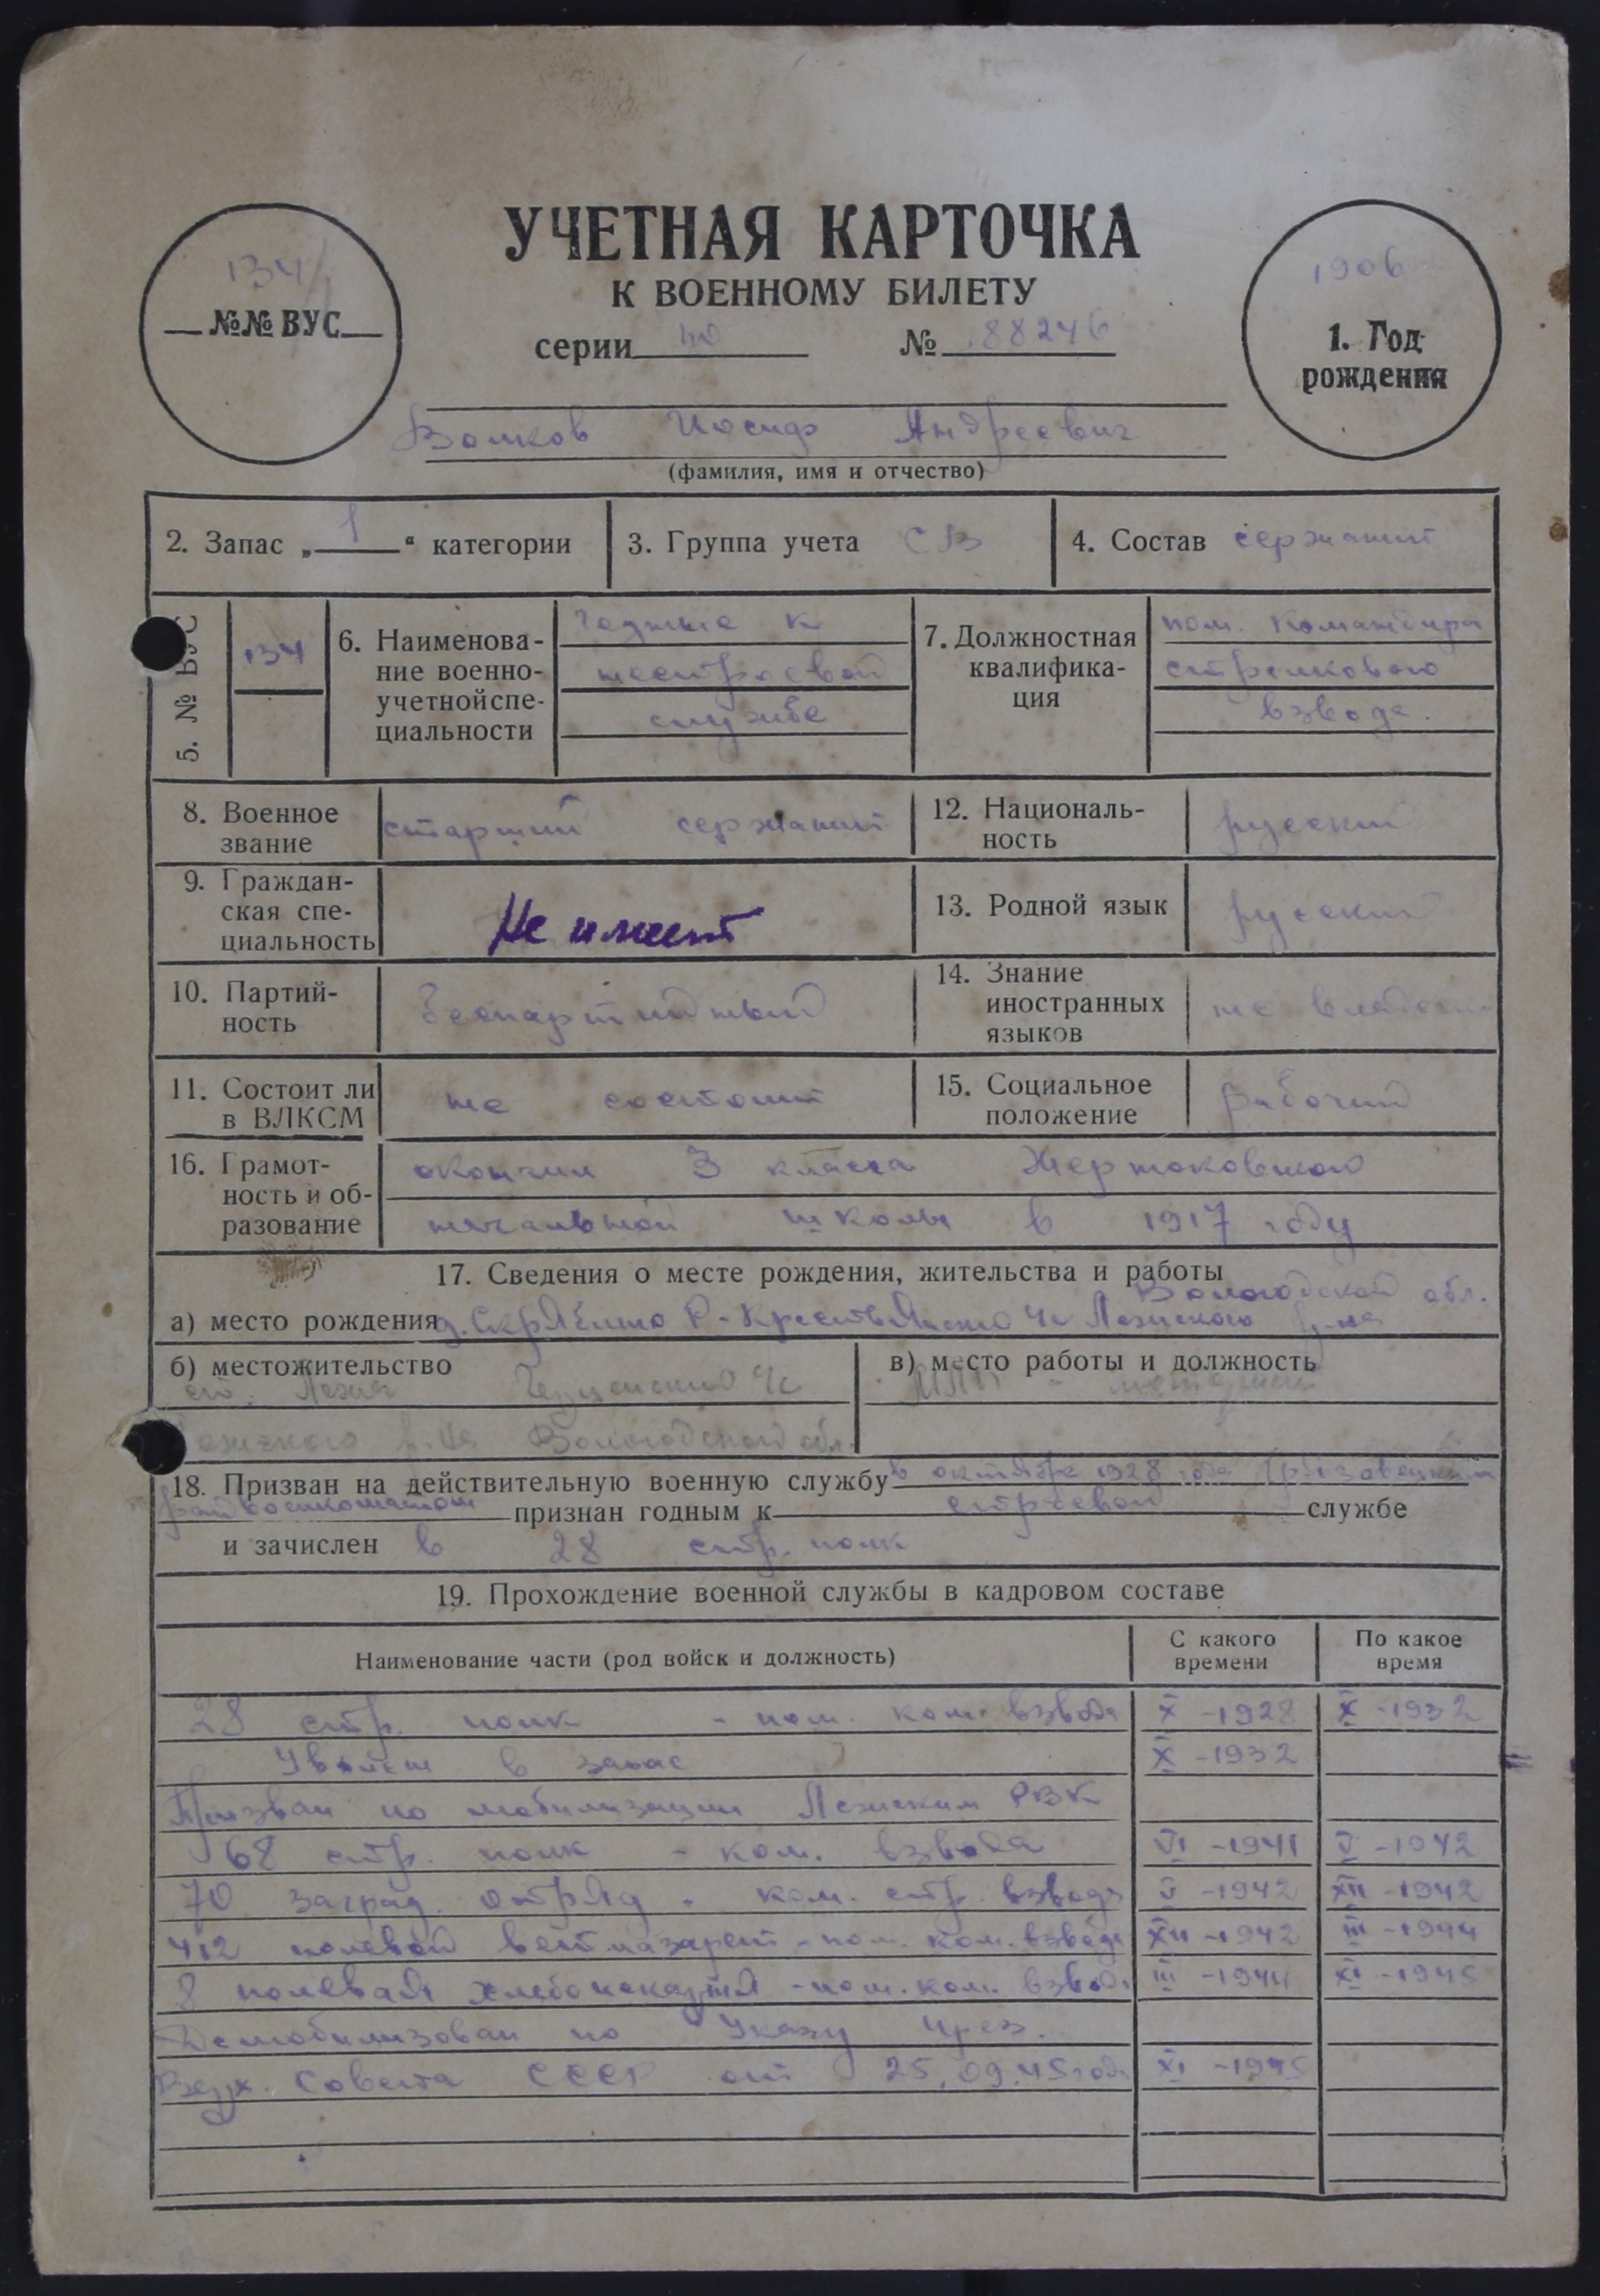 УЧЕТНАЯ КАРТОЧКА
К ВОЕННОМУ БИЛЕТУ
134
№№ ВУС
серии № 88246
1906
1. Год рождения
Волков Иосиф Андреевич
(фамилия, имя и отчество)
2. Запас „1“ категории
3. Группа учета СВ
4. Состав сержант
5. № ВУС
134
6. Наименова-
ние военно-
учетной спе-
циальности
годные к
нестроевой
службе
7. Должностная
квалифика-
ция
пом. командира
стрелкового
взвода.
8. Военное
звание
старший сержант
12. Националь-
ность
русский
9. Граждан-
ская спе-
циальность
Не имеет
13. Родной язык
русский
10. Партий-
ность
беспартийный
14. Знание
иностранных
языков
не владеет
11. Состоит ли
в ВЛКСМ
не состоит
15. Социальное
положение
рабочий
16. Грамот-
ность и об-
разование
окончил 3 класса
начальной школы в 1917 году
17. Сведения о месте рождения, жительства и работы
Вологодской обл.
а) место рождения д. Скрябино Р-Крестьянского с/с Лежского р-на
б) местожительство
ст. Лежа с/с
Лежского р-на Вологодской обл.
в) место работы и должность
18. Призван на действительную военную службу в октябре 1928 года Грязовецким
райвоенкоматом признан годным к строевой службе
и зачислен в 28 стр. полк
19. Прохождение военной службы в кадровом составе
Наименование части (род войск и должность)
С какого
времени
По какое
время
28 стр. полк - пом. ком. взвода X -1928 X -1932
Уволен в запас X -1932
Призван по мобилизации Лежским РВК
68 стр. полк - ком. взвода VI -1941 V -1942
70 заград. отряд - ком. стр. взвода V -1942 XII -1942
412 полевой ветлазарет - пом. ком. взвода XII -1942 III -1944
8 полевая хлебопекарня - пом. ком. взвода III -1944 XI -1945
Демобилизован по Указу През.
Верх. Совета СССР от 25.09.45 года XI -1945